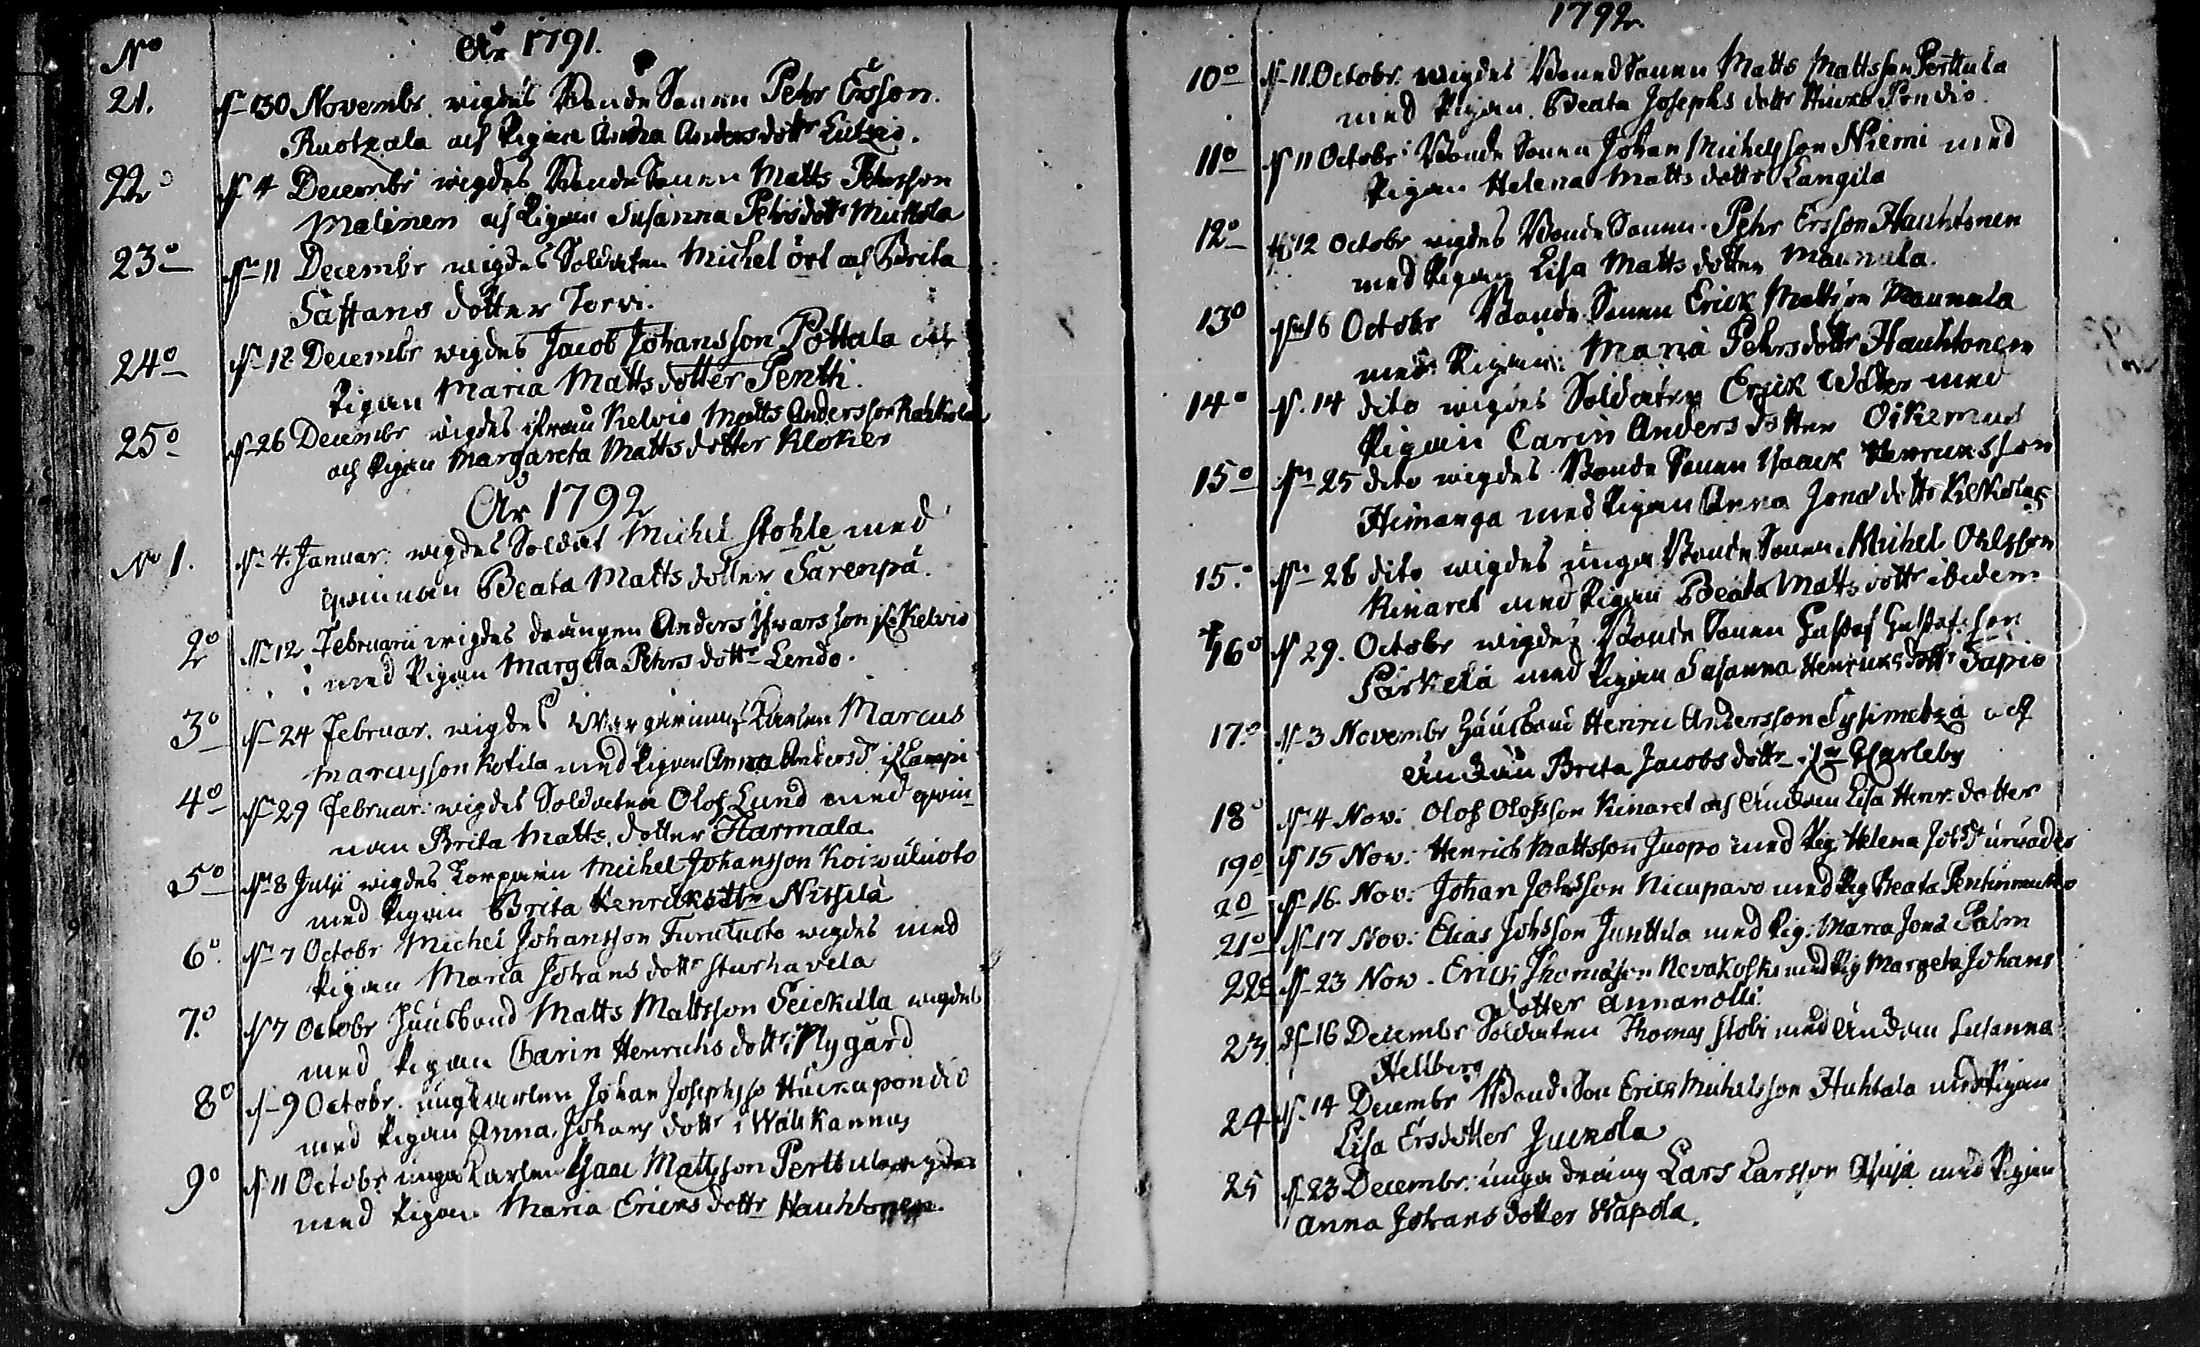 No År 1791.
21. d 30 Novembr. wigdes Bonde Sonen Pehr Ersson.
Ruotzala och Pigan Anna Andersdottr
22o d 4 Decembr wigdes Bonde Sonen Matts Pehrsson
Malinen och Pigan Susanna Pehrsdottr Mickola
23o dn 11 Decembr wigdes Soldaten Michel Ört och Brita
Saftans dotter Torvi.
24o d 12 Decembr wigdes Jacob Johansson Pottala och
Pigan Maria Matts dotter Penth.
25o d 26 Decembr wigdes ifrån Kelvio Matts Andersson Rahkola
och Pigan Margareta Matts dotter Kloker
År 1792
No 1. dn 4. Januar: wigdes Soldat Michel Stohle med
qwinnan Beata Matts dotter Sarenpä.
2o dn 12 Februarii wigdes drängen Anders Ifvarsson if Kelvio
med Pigan Margeta Pehrs dottr Lendo.
3o d 24 Februar. wigdes Karlen Marcus
Marcusson Kotila med Pigan Anna Anders D if Lampi
4o d 29 Februar: wigdes Soldaten Olof Lund med qwin-
nan Brita Matts. dotter Harmala.
5o dn 8 Julii wigdes Michel Johansson Koiwuluoto
med Pigan Brita Henricksdtr Nissilä
6o. dn 7 Octobr Michel Johansson wigdes med
Pigan Maria Johans dottr Sturhavela
7.o d 7 Octobr Huusbond Matts Mattsson Teickula wigdes
med Pigan Charin Henrichs dottr: Nygård
8o d 9 Octobr. ungkarlen Johan Josephsso Huckapondio
med Pigan Anna. Johans dottr i Wälikannas
9o d 11 Octobr unga Karlen Isaac Mattsson Perttula wigdes
med Pigan Maria Ericks dottr Hauhtonen.
1792
10o d 11. Octobr. wigdes Bonde Sonen Matts Mattsson Perttula
med Pigan. Beata Josephs dottr Pondio
11o d 11 Octobr: Bonde Sonen Johan Michelsson Niemi med
Pigan Helena Matts dottr Langila
12o 12 Octobr wigdes Bonde Sonen Pehr Ersson Hauhtonen
med Pigan Lisa Matts dotter Maunula.
13o dn 16 Octobr Bonde Sonen Erick Mattsson Maunula
med Pigan: Maria Pehrsdottr Hauhtonen
14o d. 14 dito wigdes Soldaten Erick med
Pigan Carin Anders dotter
15o dn 25 dito wigdes Bonde Sonen Isaack Henricksson
Himanga med Pigan Anna Jonæ dottr
15.o dn 28 dito wigdes unga Bonde Sonen Michel Ohlsson
Kinaret med Pigan Beata Matts dottr ibidem
16o d 29. Octobr wigdes Bonde Sonen Gustaf Gustafsson
Särkelä med Pigan Susanna Henricks dottr Tapio
17.o d 3 Novembr Huusbond Henric Andersson Sysimetzä och
Änckan Brita Jacobs dottr ifr G Carleby
18o d 4 Nov: Olof Olofsson Kinaret och Änckan Lisa Henr. dotter
19o d 15 Nov: Henrich Mattsson Juopo med Pig. Helena
20 d 16. Nov: Johan Johsson Nicupavo med Pig Beata
21o d 17 Nov: Elias Johsson Junttila med Pig: Maria Jonæ Palm
22o d 23 Nov. Erick Thomasson Nevakoski med Pig Margeta Johans
dotter Annanolli.
23. d 16 Decembr Soldaten Thomas Stobi med Änckan Susanna
Hellberg
24 d. 14 Decembr Bonde Son Erick Michelsson Huhtala med Pigan
Lisa Ersdotter Juckola
25 d 23 Decembr. unga dräng Lars Larsson med Pigan
Anna Johans dotter Wapola.